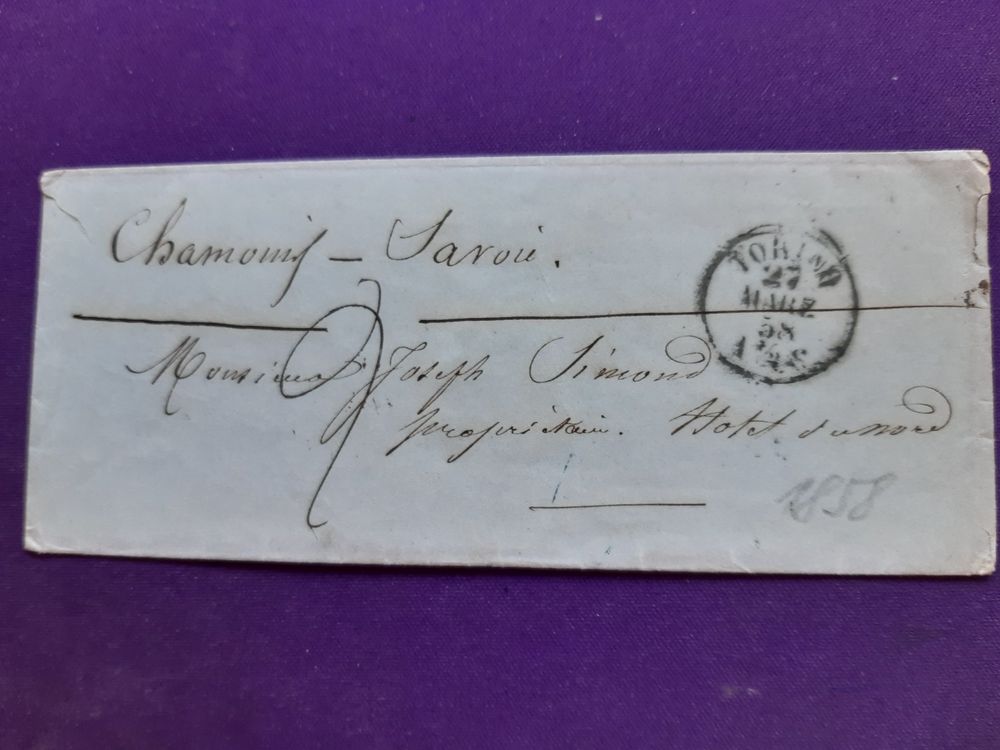 Chamonix – Savoie.
TORINO
27
MARZ
58
Monsieur Joseph Simond
propriétaire. Hotel du nord
1858